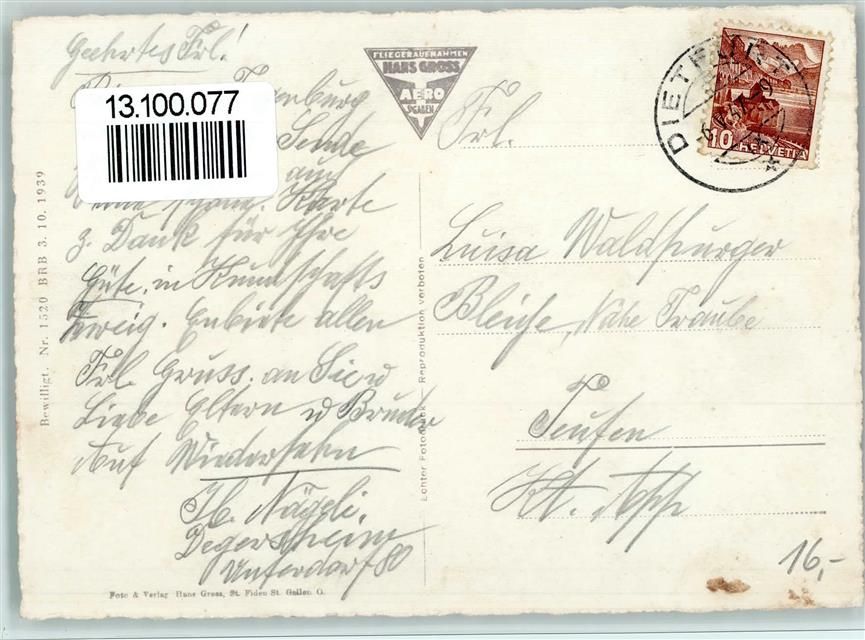 Geehrtes Frl!
Toggenburg
Sende
aus
Karte
z. Dank für Ihre
Güte. in Kundschafts
Zweig. Enbiete allen
Frl. Gruss. an Sie u
Liebe Eltern u Bruder
Auf Wiedersehn
Jb. Nägeli,
Degersheim
Unterdorf 80
13.100.077
Bewilligt. Nr. 1520 BRB 3. 10. 1939
FLIEGERAUFNAHMEN
HANS GROSS
AERO
ST.GALLEN
Echter Fotodruck - Reproduktion verboten
DIETFURT
10 HELVETIA
Frl.
Luisa Waldburger
Bleiche, Nähe Traube
Teufen
Kt. App
16,-
Foto & Verlag Hans Gross, St. Fiden St. Gallen O.